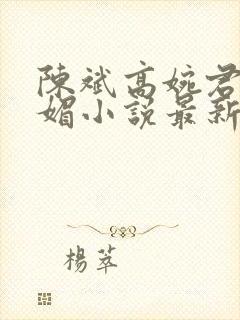 陳斌高婉君
媚小說最新
楊萃